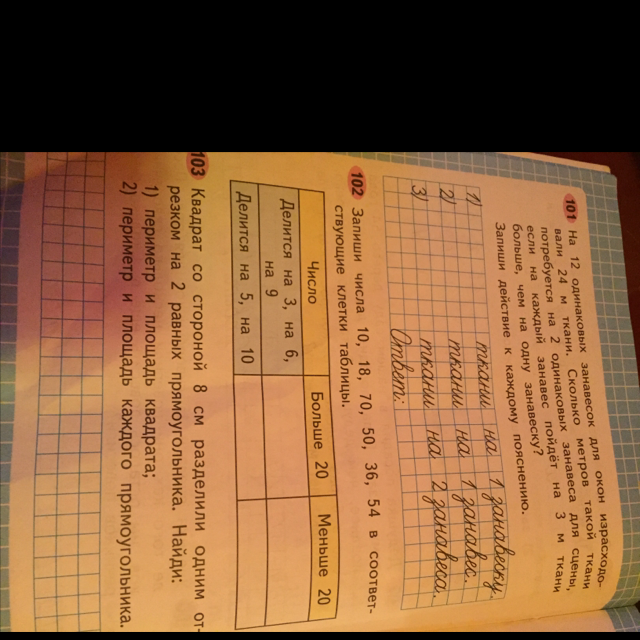 101 На 12 одинаковых занавесок для окон израсходо-
вали 24 м ткани. Сколько метров такой ткани
потребуется на 2 одинаковых занавеса для сцены,
если на каждый занавес пойдёт на 3 м ткани
больше, чем на одну занавеску?
Запиши действие к каждому пояснению.
1) ткани на 1 занавеску.
2) ткани на 1 занавес.
3) ткани на 2 занавеса.
Ответ:
102 Запиши числа 10, 18, 70, 50, 36, 54 в соответ-
ствующие клетки таблицы.
Число Больше 20 Меньше 20
Делится на 3, на 6,
на 9
Делится на 5, на 10
103 Квадрат со стороной 8 см разделили одним от-
резком на 2 равных прямоугольника. Найди:
1) периметр и площадь квадрата;
2) периметр и площадь каждого прямоугольника.